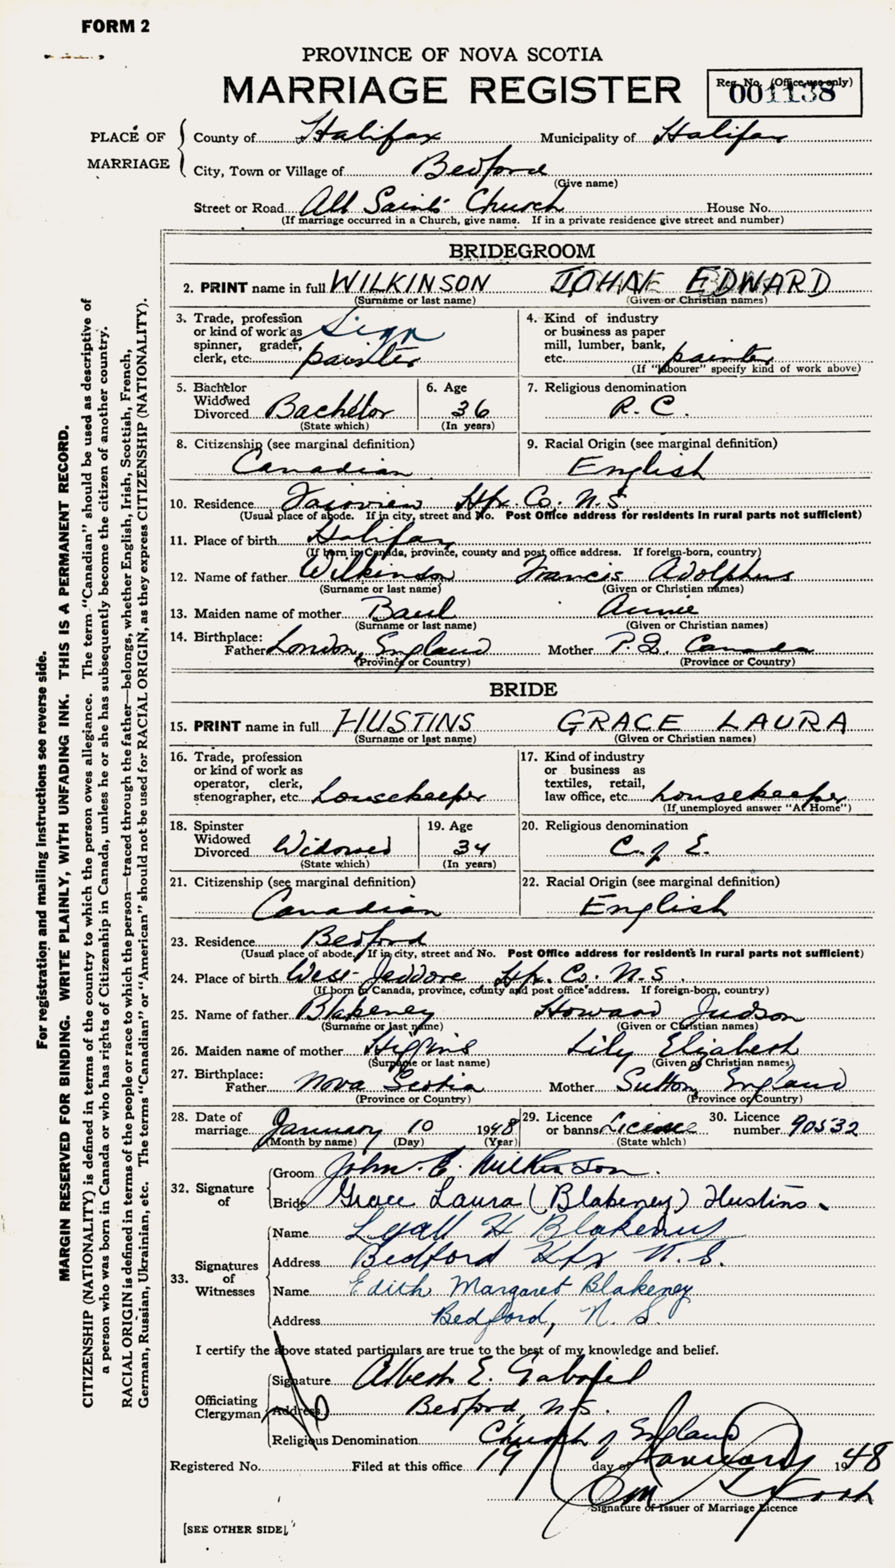 FORM 2
PROVINCE OF NOVA SCOTIA
MARRIAGE REGISTER
Reg. No. (Office use only)
001138
PLACE OF MARRIAGE
County of Halifax Municipality of Halifax
City, Town or Village of Bedford
(Give name)
Street or Road All Saints Church House No.
(If marriage occurred in a Church, give name. If in a private residence give street and number)
BRIDEGROOM
2. PRINT name in full WILKINSON EDWARD
(Surname or last name) (Given or Christian names)
3. Trade, profession or kind of work as spinner, grader, clerk, etc. Sign painter
4. Kind of industry or business as paper mill, lumber, bank, etc. painter
(If "labourer" specify kind of work above)
5. Bachelor Widowed Divorced Bachelor
(State which)
6. Age 36
(In years)
7. Religious denomination R.C.
8. Citizenship (see marginal definition) Canadian
9. Racial Origin (see marginal definition) English
10. Residence Fairview Hfx. Co. N.S.
(Usual place of abode. If in city, street and No. Post Office address for residents in rural parts not sufficient)
11. Place of birth Halifax
(If born in Canada, province, county and post office address. If foreign-born, country)
12. Name of father Wilkinson Francis Adolphus
(Surname or last name) (Given or Christian names)
13. Maiden name of mother Annie
(Surname or last name) (Given or Christian names)
14. Birthplace: Father London, England Mother P.Q. Canada
(Province or Country) (Province or Country)
BRIDE
15. PRINT name in full HUSTINS GRACE LAURA
(Surname or last name) (Given or Christian names)
16. Trade, profession or kind of work as operator, clerk, stenographer, etc. housekeeper
17. Kind of industry or business as textiles, retail, law office, etc. housekeeper
(If unemployed answer "At Home")
18. Spinster Widowed Divorced Widowed
(State which)
19. Age 34
(In years)
20. Religious denomination C. of E.
21. Citizenship (see marginal definition) Canadian
22. Racial Origin (see marginal definition) English
23. Residence Bedford
(Usual place of abode. If in city, street and No. Post Office address for residents in rural parts not sufficient)
24. Place of birth West Jeddore Hfx. Co. N.S.
(If born in Canada, province, county and post office address. If foreign-born, country)
25. Name of father Blakeney Howard Judson
(Surname or last name) (Given or Christian names)
26. Maiden name of mother Higgins Lily Elizabeth
(Surname or last name) (Given or Christian names)
27. Birthplace: Father Nova Scotia Mother Sutton, England
(Province or Country) (Province or Country)
28. Date of marriage January 10 1948
(Month by name) (Day) (Year)
29. Licence or banns License
(State which)
30. Licence number 90532
32. Signature of
Groom John. E. Wilkinson.
Bride Grace Laura (Blakeney) Hustins.
33. Signatures of Witnesses
Name Lyall H Blakeney
Address Bedford Hfx N.S.
Name Edith Margaret Blakeney
Address Bedford, N.S.
I certify the above stated particulars are true to the best of my knowledge and belief.
Officiating Clergyman
Signature Albert E. Gabriel
Address Bedford, N.S.
Religious Denomination Church of England
Registered No. Filed at this office 19 day of January 1948
Signature of Issuer of Marriage Licence
[SEE OTHER SIDE]
For registration and mailing instructions see reverse side.
MARGIN RESERVED FOR BINDING. WRITE PLAINLY, WITH UNFADING INK. THIS IS A PERMANENT RECORD.
CITIZENSHIP (NATIONALITY) is defined in terms of the country to which the person owes allegiance. The term "Canadian" should be used as descriptive of
a person who was born in Canada or who has rights of Citizenship in Canada, unless he or she has subsequently become the citizen of another country.
RACIAL ORIGIN is defined in terms of the people or race to which the person—traced through the father—belongs, whether English, Irish, Scottish, French,
German, Russian, Ukrainian, etc. The terms "Canadian" or "American" should not be used for RACIAL ORIGIN, as they express CITIZENSHIP (NATIONALITY).